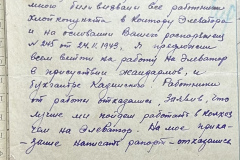 мною были вызваны все работники
Хлопкопункта в контору Элеватора
и на основании Вашего распоряжения
№ 245 от 24.11.1943. Я предложил
всем выйти на работу на Элеватор
в присутствии жандармов, и
бухгалтера Кадинского. Работники
от работы отказались. Заявив, что
лучше мы пойдем работать в колхоз
чем на Элеватор. На мое прика-
зание написать рапорт - отказались